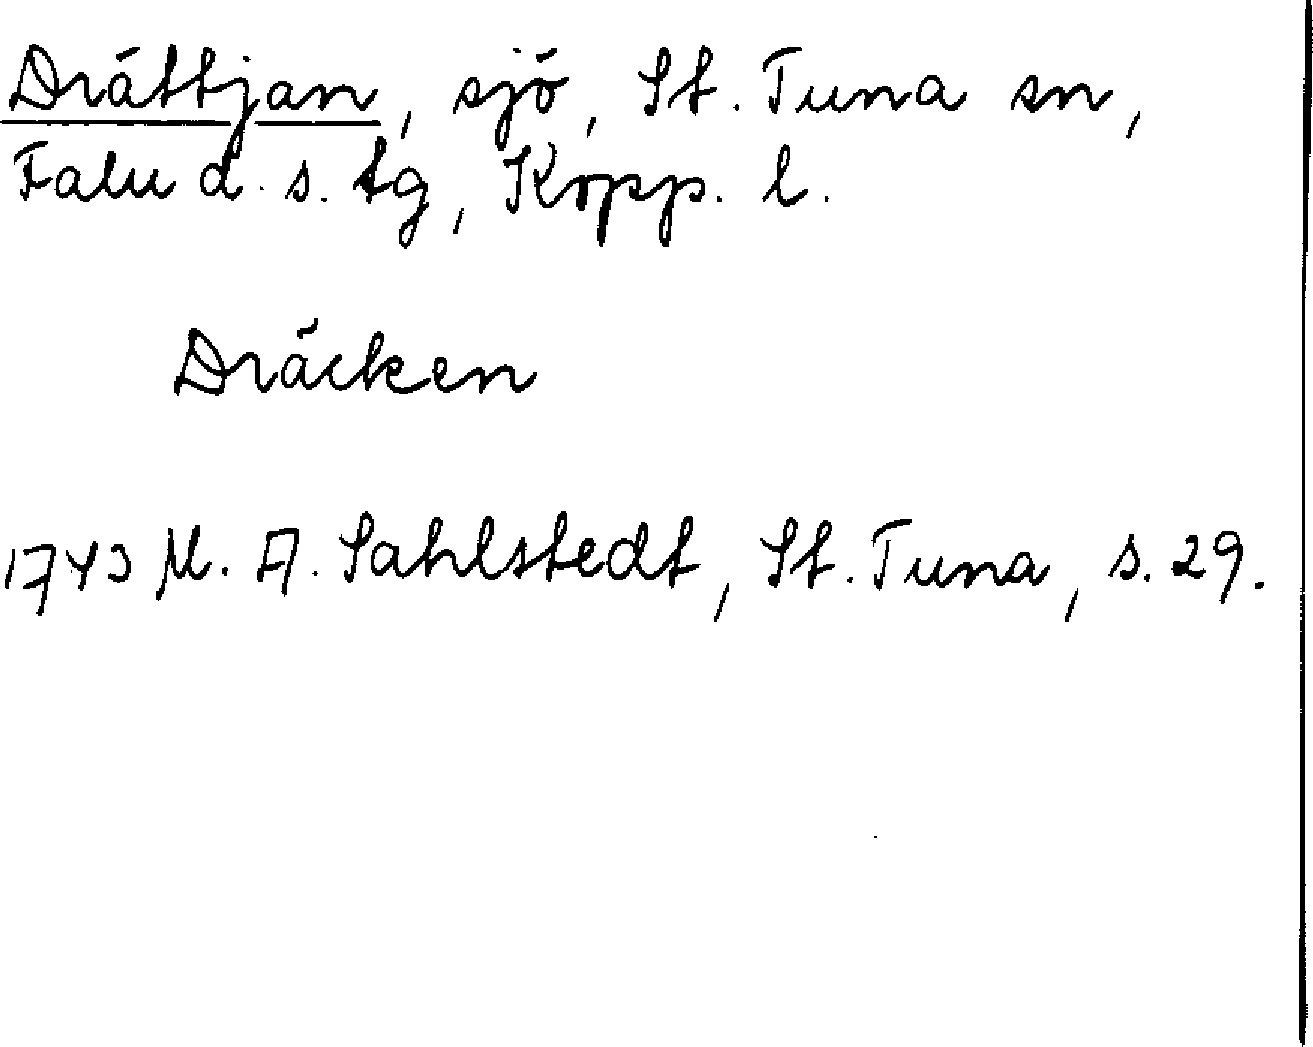 Drättjan, sjö, St. Tuna sn,
Falu d. s. tg, Kopp. l.
Dräcken
1743 M. A. Sahlstedt, St. Tuna, s. 29.